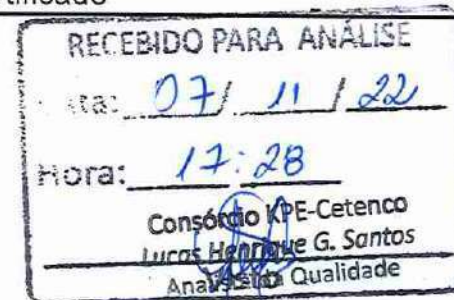 tificado
RECEBIDO PARA ANÁLISE
ta: 07 / 11 / 22
Hora: 17:28
Consórcio KPE-Cetenco
Lucas Henrique G. Santos
Analista da Qualidade